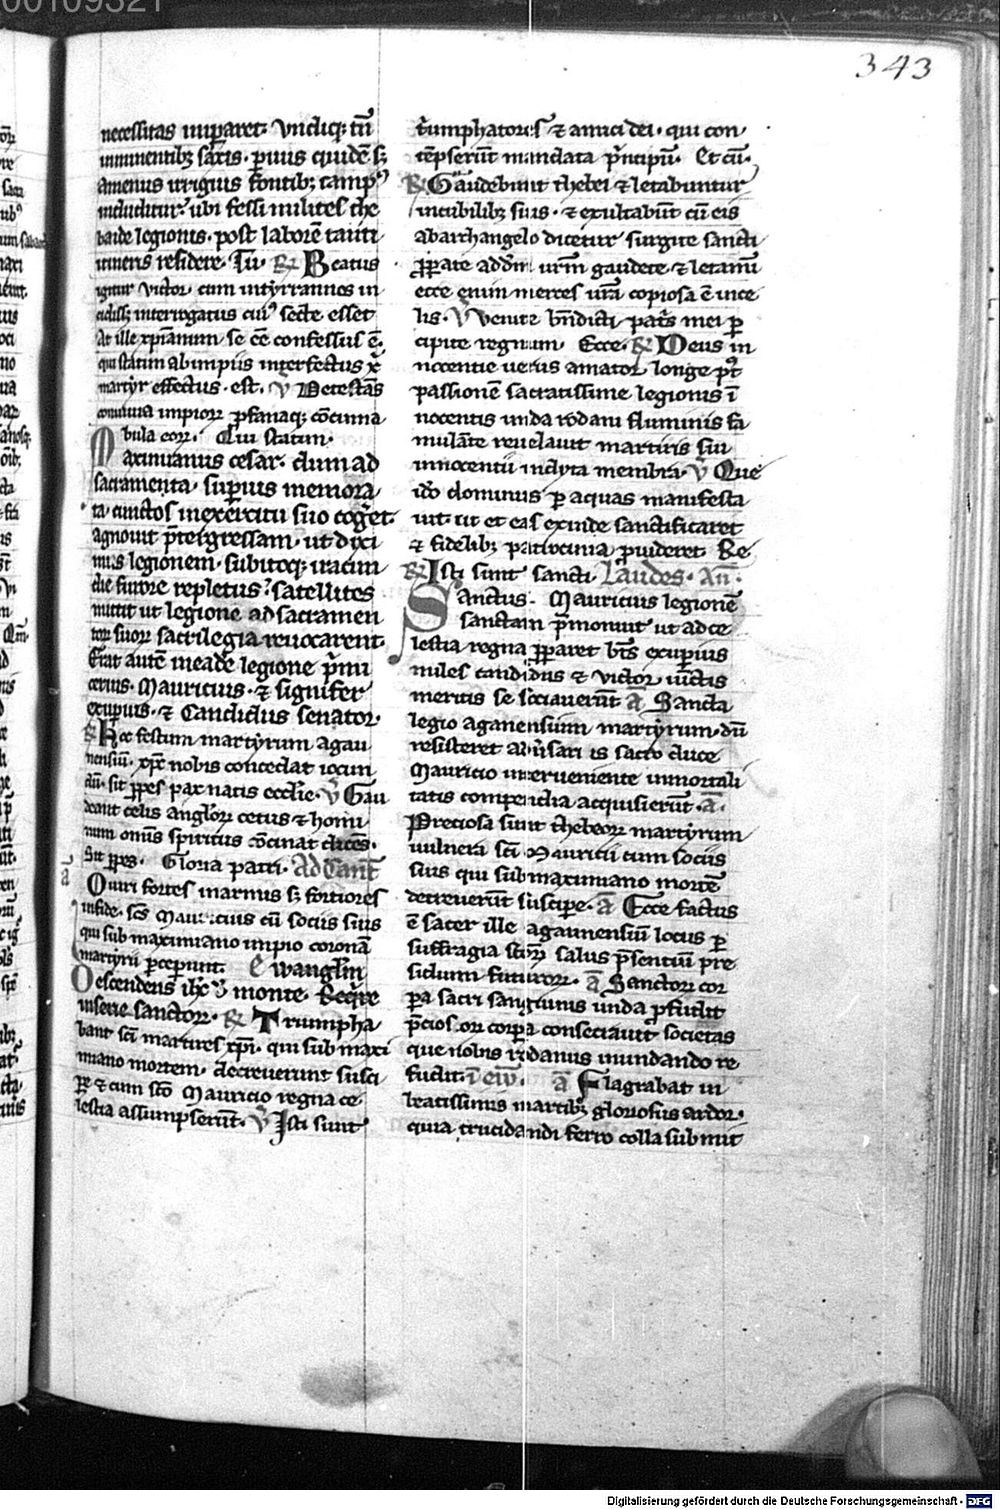 00109321
343
necessitas imperaret. Vndiq; tn̄
imminentib; saxis. p̄uius quidē s;
amenus irriguus fontib; campꝰ
includitur. ubi fessi milites the
baide legionis. post laborē tanti
itineris resedere. Tū. R Beatus
igitur Victor. cum intyrrannos in
interrogatus cuiꝰ secte esset
At ille xp̄ianum se eē confessus ē.
qui statim ab impiis interfectus xp̄
martyr effectus. est. V Detestās
conuiuia impioꝝ p̄fanaq; cōtinna
bula eoꝝ. Qui statim.
Maximianus cesar. dum ad
sacramenta. superius memora
ta. cunctos in exercitu suo coḡet.
agnouit p̄tergressam. ut dixi
mus legionem. subitoq; iracun
die furore repletus. satellites
mittit ut legionē ad sacramen
toꝝ suoꝝ sacrilegia reuocarent.
Erat autē in eadē legione p̄mi
cerius. Mauricius. & signifer
exupius. & Candidus senator.
R Hoc festum martyrum agau
nensiū. xp̄c nobis concedat iocun
dū. sit ꝑpes pax natis ecclie. V Gau
deant celis angloꝝ cetus & homi
num omīs spiritus cōcinat dicēs.
Sit ꝑpes. Gloria patri. Ad Cant̄
a
Quiri fortes in armis s; fortiores
in fide. scs̄ Mauricius cū sociis suis
qui sub maximiano impio coronā
martyrii ꝑceperunt. Ewanglīm
Descendens ih̄c d̄ monte. Req̄re
in serie sanctoꝝ. R Triumpha
bant sc̄i martires xp̄i. qui sub maxi
miano mortem. decreuerunt susci
pe & cum sc̄o Mauricio regna ce
lestia assumpserūt. V Isti sunt
t̄umphatores & amici dei. qui con
tēpserūt mandata p̄ncipū. Et cū.
R Gaudebunt thebei & letabuntur
in cubilib; suis. & exultabūt cū eis
ab archangelo dicetur surgite sancti
ꝑꝑate ad dn̄m urm̄ gaudete & letamī
ecce enim merces urā copiosa ē in ce
lis. V Venite bn̄dicti patꝭ mei ꝑ
cipite regnum. Ecce. R Deus in
nocentie uerus amator longe pꝰt
passionē sacratissime legionis ī
nocentis unda rodani fluminis fa
mulāte reuelauit martiris sui
innocentii inclyta membra. V Que
ido dominus ꝑ aquas manifesta
uit. ut et eas exinde sanctificaret
& fidelib; patrocinia ꝓuideret Re
R Isti sunt sancti. Laudes. An̄.
Sanctus. Mauricius legionē
sanctam p̄monuit ut ad ce
lestia regna ꝑꝑaret bt̄s exuperius
miles candidus & uictor iūctis
meritis se sociauerūt ā Sancta
legio aganensium martyrum. dū
resisteret aduīsariis sacro duce
Mauricio interueniente immortali
tatis compendia acquisierūt. ā.
Preciosa sunt thebeoꝝ martyrum
uulnera sc̄i Mauricii cum sociis
suis qui sub maximiano mortē
decreuerūt suscipe. ā Ecce factus
ē sacer ille agaunensiū locus ꝑ
suffragia sc̄oꝝ salus p̄sentiū pre
sidium futuroꝝ. ā Sanctoꝝ cor
ꝑa sacri sanguinis unda ꝑfudit
p̄ciosoꝝ corpa consecrauit societas
que nobis rodanus inundando re
fudit. in ew̄. ā Flagrabat in
beatissimis martirib; gloriosus ardor.
quia trucidandi ferro colla submit
Digitalisierung gefördert durch die Deutsche Forschungsgemeinschaft - DFG